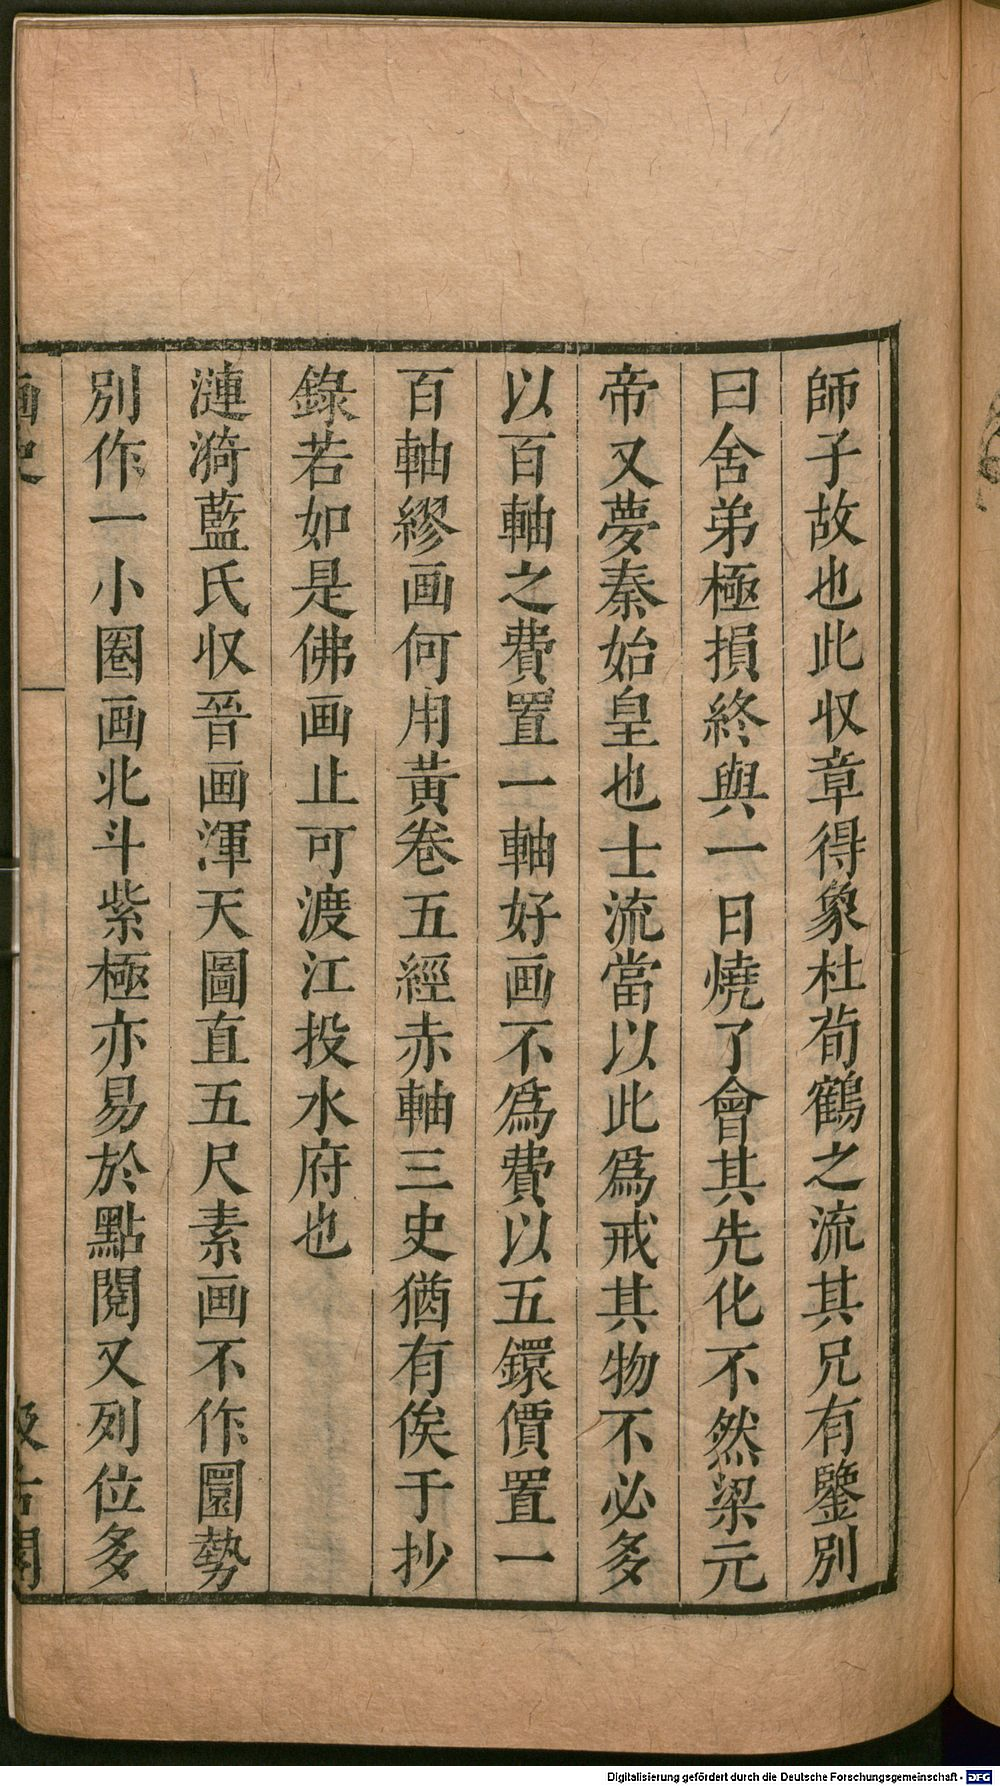 師子故也此収章得象杜荀鶴之流其兄有鑒別
曰舍弟極損終與一日燒了會其先化不然梁元
帝又夢秦始皇也士流當以此爲戒其物不必多
以百軸之費置一軸好画不爲費以五鐶價置一
百軸繆画何用黃卷五經赤軸三史猶有俟于抄
錄若如是佛画止可渡江投水府也
漣漪藍氏収晉画渾天圖直五尺素画不作圜勢
別作一小圈画北斗紫極亦易於點閱又列位多
画史
汲古閣
Digitalisierung gefördert durch die Deutsche Forschungsgemeinschaft - DFG